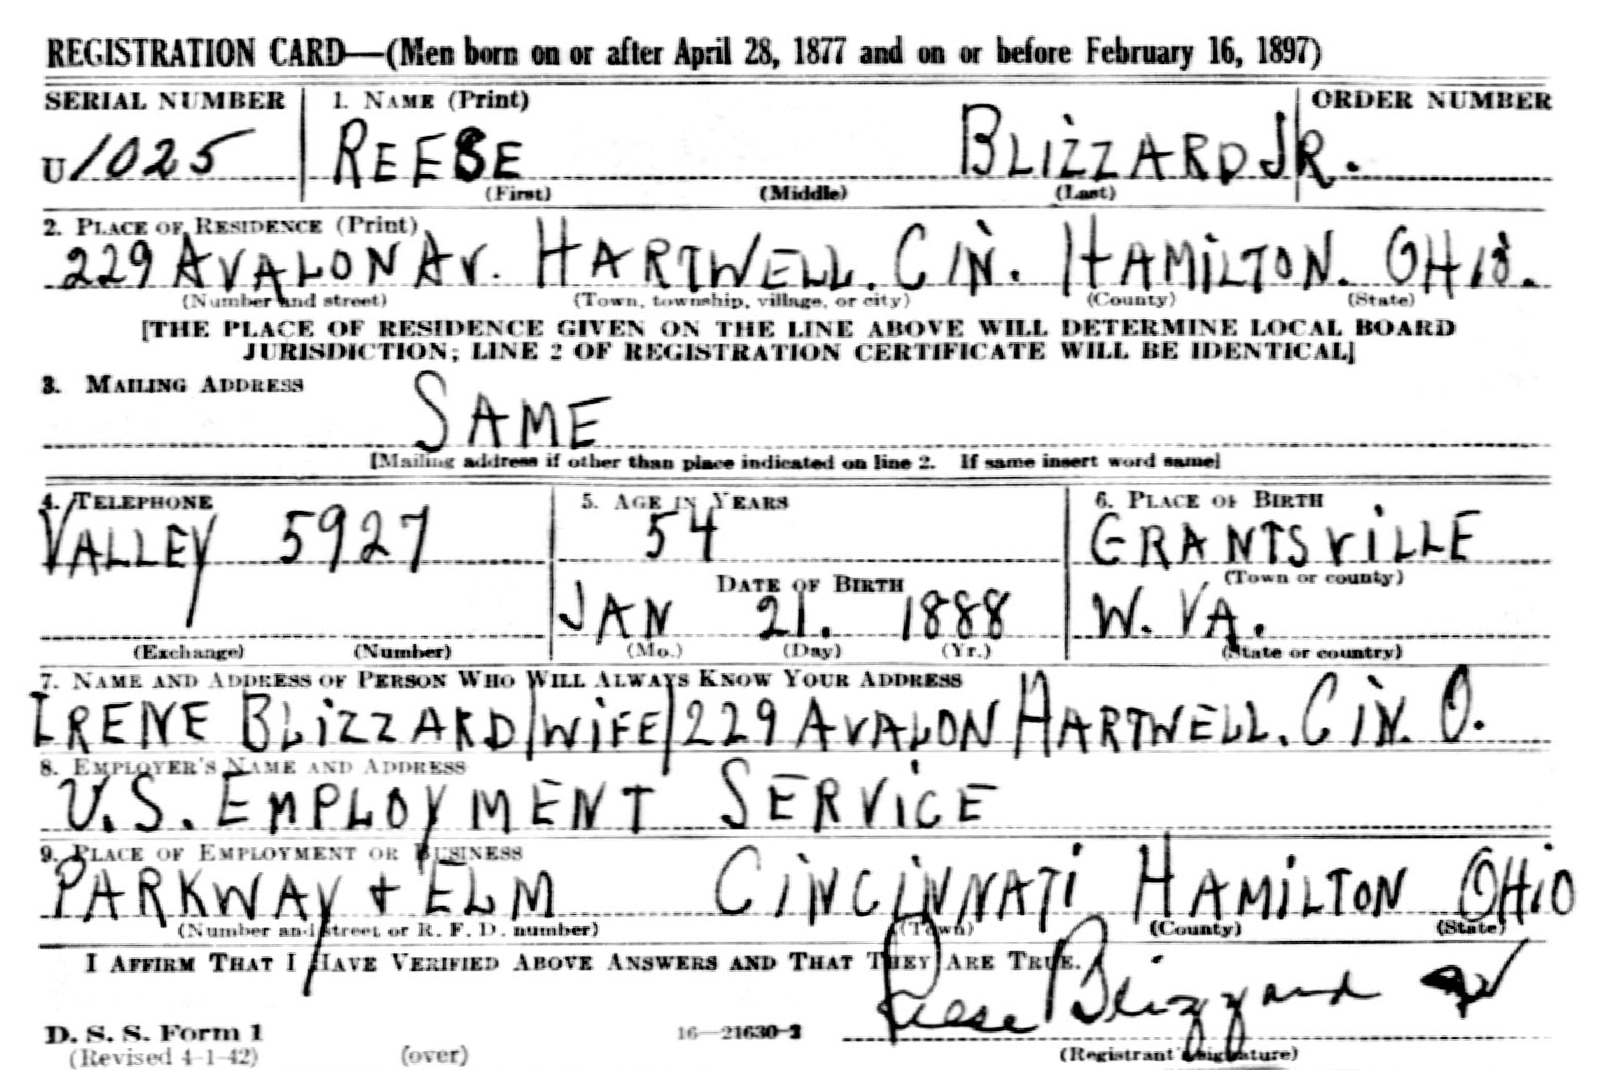 REGISTRATION CARD—(Men born on or after April 28, 1877 and on or before February 16, 1897)
SERIAL NUMBER 1. NAME (Print) ORDER NUMBER
U 1025 REESE BLIZZARD JR.
(First) (Middle) (Last)
2. PLACE OF RESIDENCE (Print)
229 AVALON AV. HARTWELL. CIN. HAMILTON. OHIO.
(Number and street) (Town, township, village, or city) (County) (State)
[THE PLACE OF RESIDENCE GIVEN ON THE LINE ABOVE WILL DETERMINE LOCAL BOARD
JURISDICTION; LINE 2 OF REGISTRATION CERTIFICATE WILL BE IDENTICAL]
3. MAILING ADDRESS
SAME
[Mailing address if other than place indicated on line 2. If same insert word same]
4. TELEPHONE 5. AGE IN YEARS 6. PLACE OF BIRTH
VALLEY 5927 54 GRANTSVILLE
(Town or county)
DATE OF BIRTH
JAN 21. 1888 W. VA.
(Exchange) (Number) (Mo.) (Day) (Yr.) (State or country)
7. NAME AND ADDRESS OF PERSON WHO WILL ALWAYS KNOW YOUR ADDRESS
IRENE BLIZZARD (WIFE) 229 AVALON HARTWELL. CIN. O.
8. EMPLOYER'S NAME AND ADDRESS
U.S. EMPLOYMENT SERVICE
9. PLACE OF EMPLOYMENT OR BUSINESS
PARKWAY + ELM CINCINNATI HAMILTON OHIO
(Number and street or R. F. D. number) (Town) (County) (State)
I AFFIRM THAT I HAVE VERIFIED ABOVE ANSWERS AND THAT THEY ARE TRUE.
Reese Blizzard Jr
D. S. S. Form 1 16—21630-2
(Revised 4-1-42) (over) (Registrant's signature)